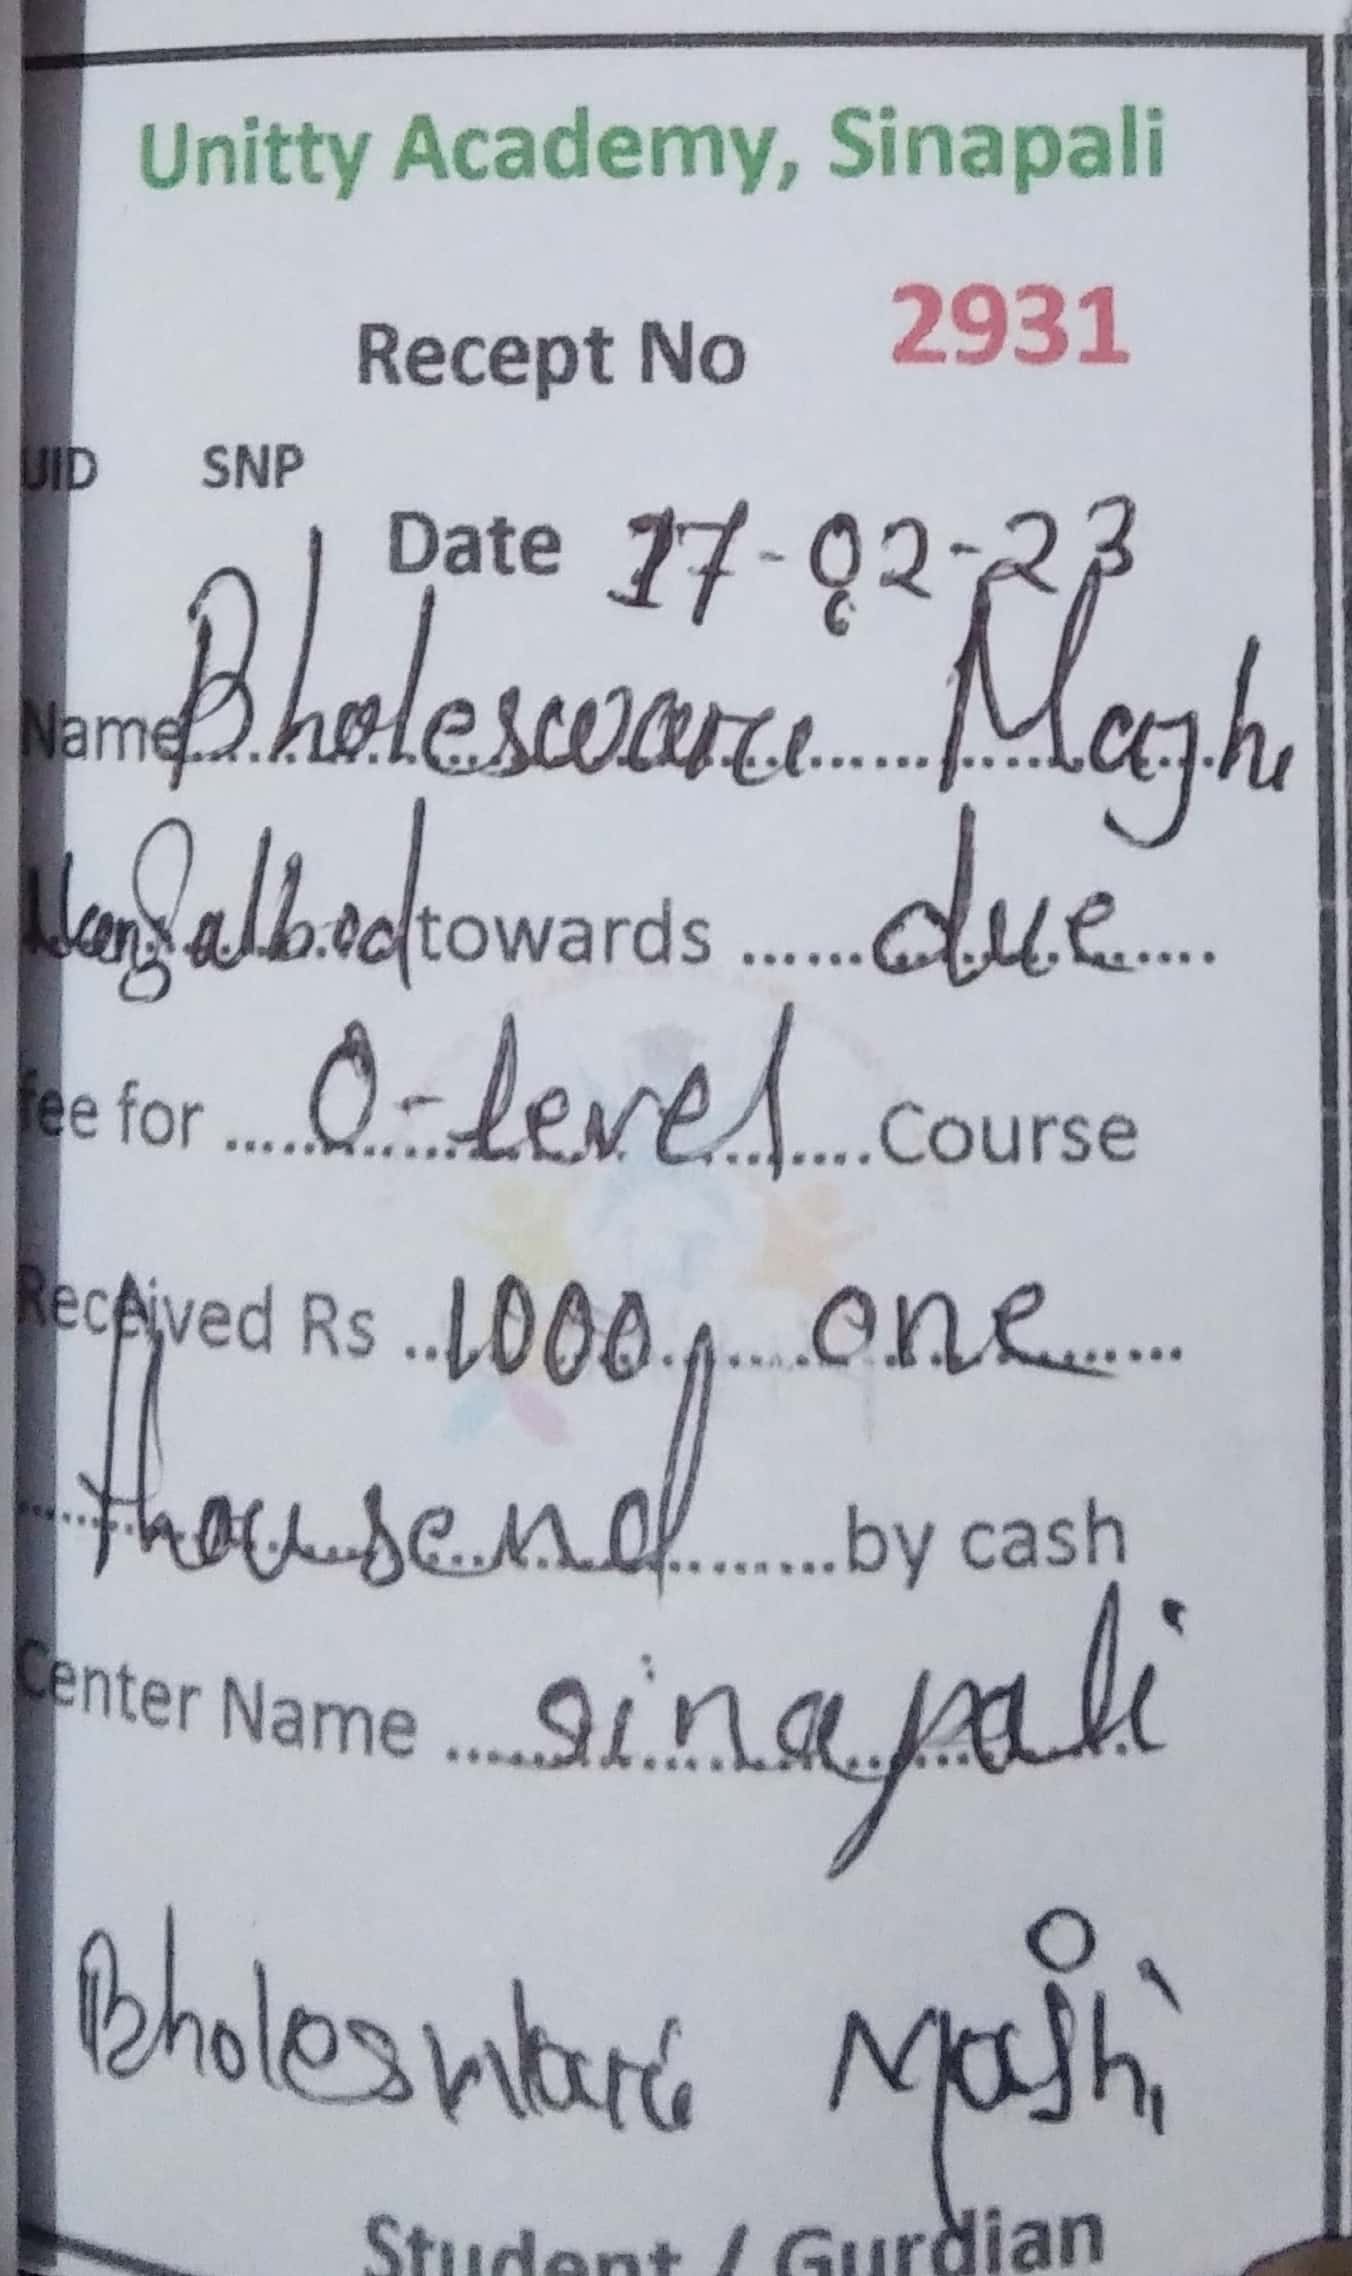 Unitty Academy, Sinapali
Recept No 2931
UID SNP
Date 17-02-23
Name Bholeswari Majhi
towards ...... due ....
fee for ..... O-level .... Course
Received Rs .. 1000 .... one ......
.... thousend ........ by cash
Center Name ..... sinapali
Bholeswari Majhi
Student / Gurdian